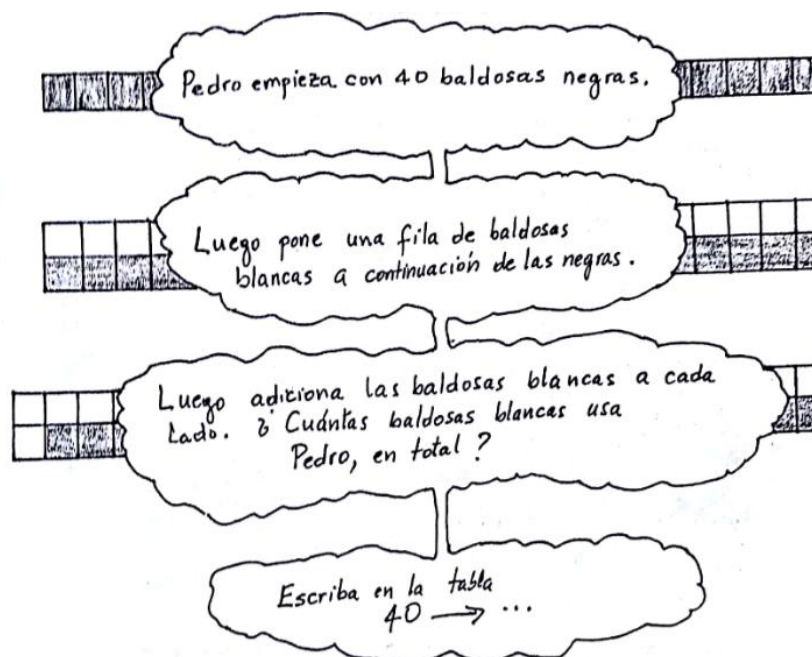 Pedro empieza con 40 baldosas negras.
Luego pone una fila de baldosas
blancas a continuación de las negras.
Luego adiciona las baldosas blancas a cada
lado. ¿Cuántas baldosas blancas usa
Pedro, en total?
Escriba en la tabla
40 → ...